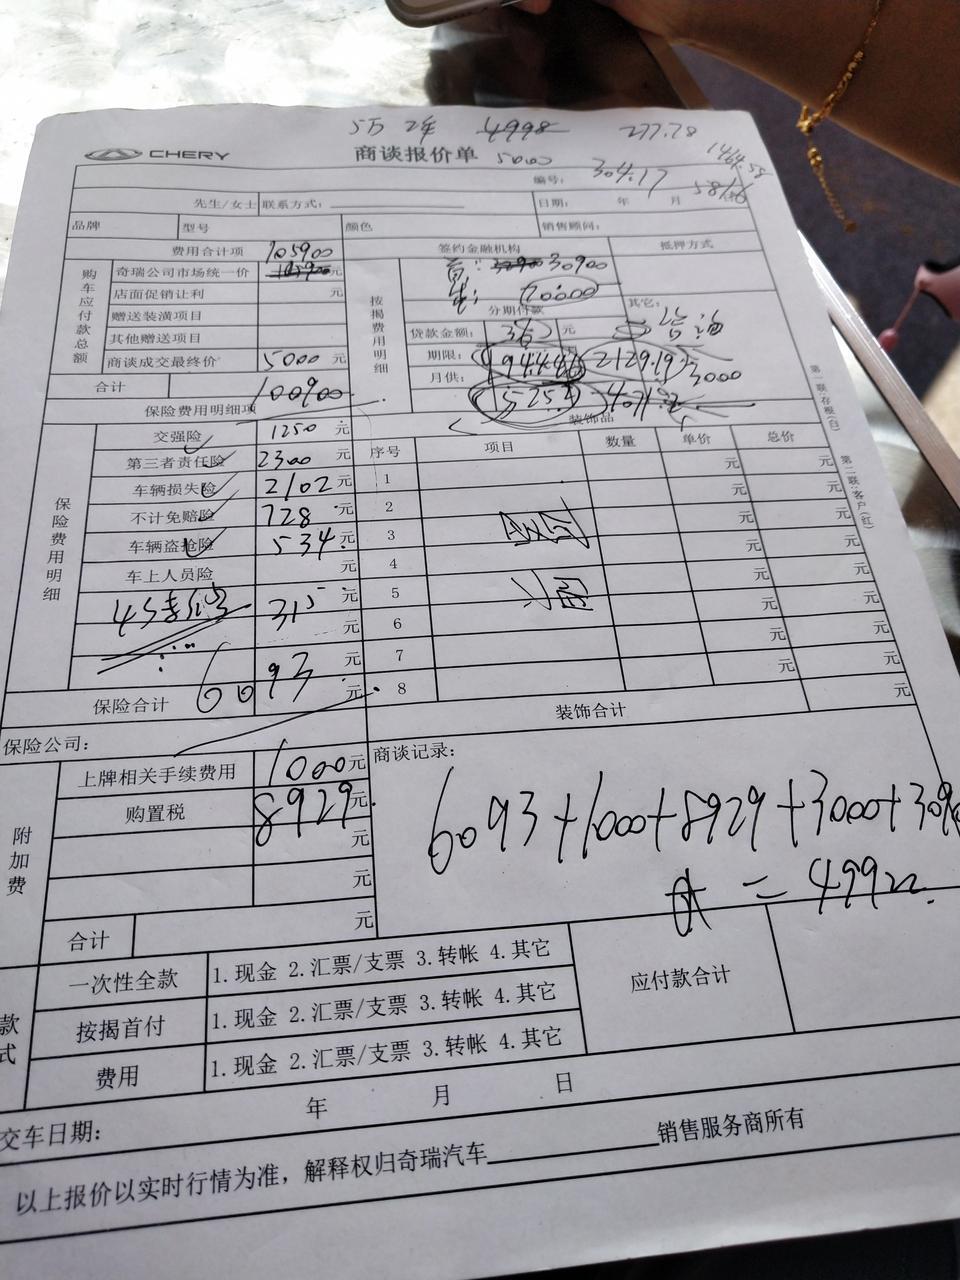 5万 2年 4998 277.78
CHERY 商谈报价单 5000 1464.58
编号: 304.17
先生/女士 联系方式: 日期: 年 月
品牌 型号 颜色 销售顾问:
费用合计项 105900 签约金融机构 抵押方式
购车应付款总额
奇瑞公司市场统一价 元 首: 30900
店面促销让利 元 70000
按揭费用明细
分期付款 其它:
赠送装潢项目
贷款金额: 36 元
其他赠送项目
期限: 2129.19 3000
商谈成交最终价 5000 元
月供: 525
合计 100900
保险费用明细项 装饰品
保险费用明细
交强险 1250 元 序号 项目 数量 单价 总价
第三者责任险 2300 元 1 元 元
车辆损失险 2102 元 2 元 元
不计免赔险 728 元 3 元 元
车辆盗抢险 534 元 4 元 元
车上人员险 元 5 元 元
315 元 6 元 元
元 7 元 元
6093 元 8 元 元
保险合计 元 装饰合计 元
保险公司:
附加费
上牌相关手续费用 1000 元 商谈记录:
购置税 8929 元
6093+1000+8929+3000+309
元
= 49922
元
合计 元
款式
一次性全款 1.现金 2.汇票/支票 3.转帐 4.其它
按揭首付 1.现金 2.汇票/支票 3.转帐 4.其它
应付款合计
费用 1.现金 2.汇票/支票 3.转帐 4.其它
交车日期: 年 月 日
以上报价以实时行情为准，解释权归奇瑞汽车 销售服务商所有
第一联:存根(白)
第二联:客户(红)